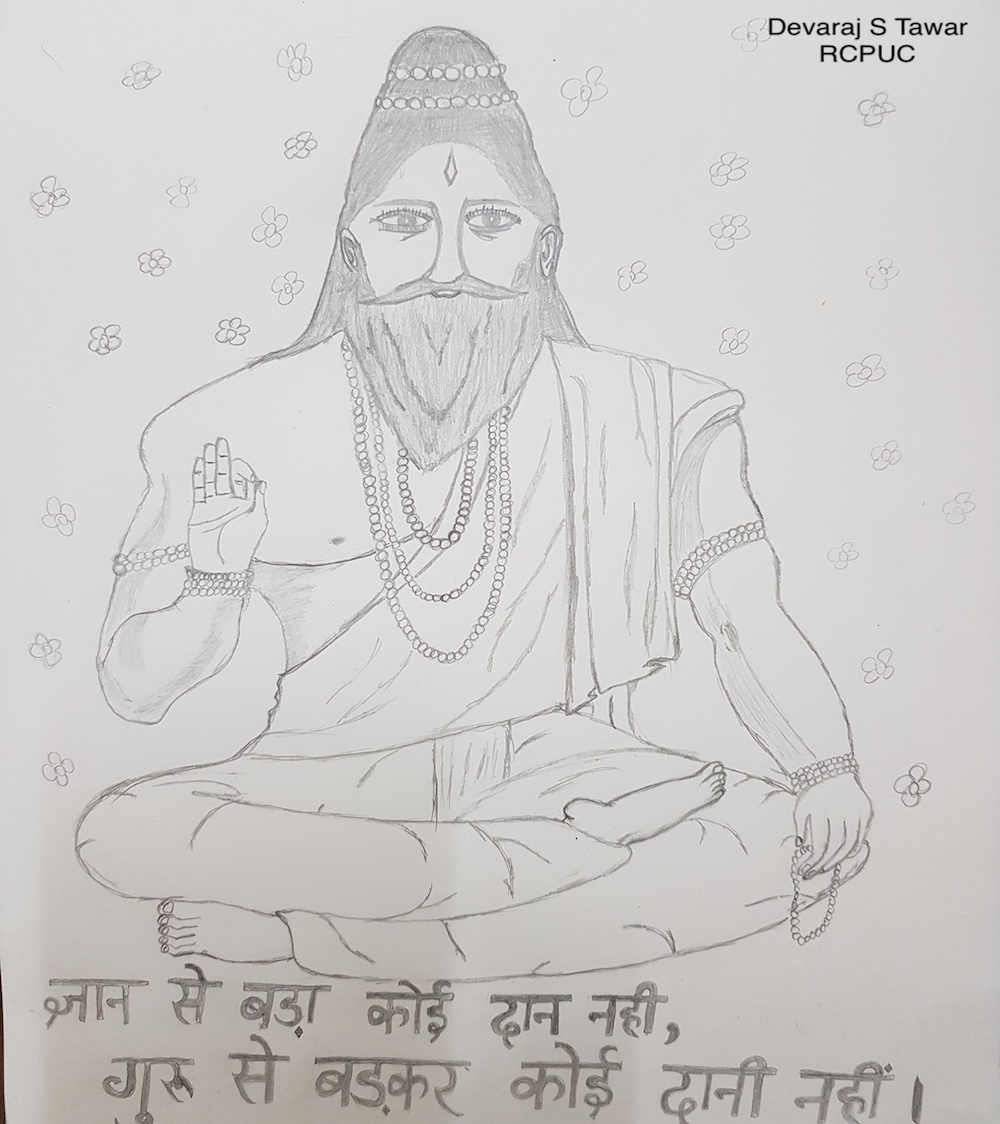 Devaraj S Tawar
RCPUC
ज्ञान से बड़ा कोई दान नही,
गुरू से बड़कर कोई दानी नहीं।